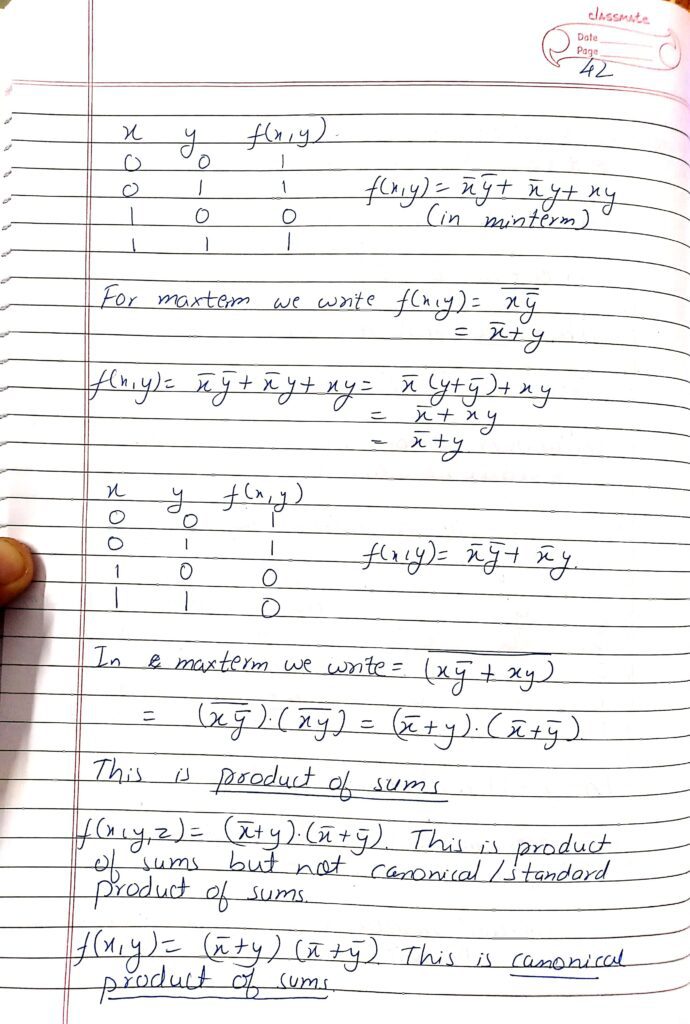 classmate
Date
Page
42
x y f(x,y)
0 0 1
0 1 1 f(x,y) = x̄ȳ + x̄y + xy
1 0 0 (in minterm)
1 1 1
For maxterm we write f(x,y) = \overline{xȳ}
= x̄+y
f(x,y) = x̄ȳ + x̄y + xy = x̄(y+ȳ) + xy
= x̄ + xy
= x̄+y
x y f(x,y)
0 0 1
0 1 1 f(x,y) = x̄ȳ + x̄y.
1 0 0
1 1 0
In maxterm we write = \overline{(xȳ + xy)}
= (\overline{xȳ}).(\overline{xy}) = (x̄+y).(x̄+ȳ)
This is product of sums
f(x,y,z) = (x̄+y).(x̄+ȳ). This is product
of sums but not canonical/standard
product of sums.
f(x,y) = (x̄+y)(x̄+ȳ). This is canonical
product of sums.